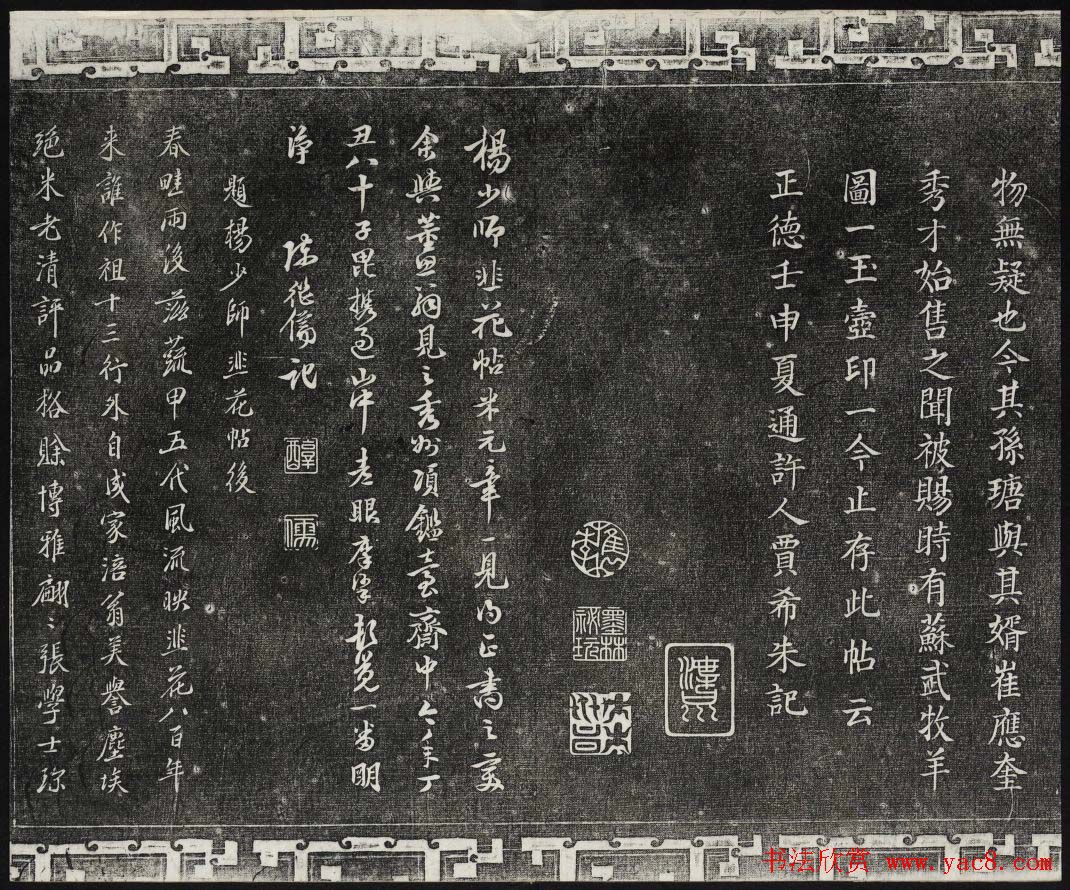 物無疑也今其孫瑭與其婿崔應奎
秀才始售之聞被賜時有蘇武牧羊
圖一玉壺印一今止存此帖云
正德壬申夏通許人賈希朱記
墨林秘玩
楊少師韭花帖米元章一見為正書之
余與董思翁見之秀州項鑑臺齋中今年丁
丑八十子毘携過山中老眼摩挲覺一當明
淨 陳繼儒記
醇
儒
題楊少師韭花帖後
春畦雨後茲蔬甲五代風流映韭花八百年
来誰作祖十三行外自成家涪翁美譽塵埃
絕米老清評品格賒博雅翩〻張學士珍
书法欣赏 www.yac8.com